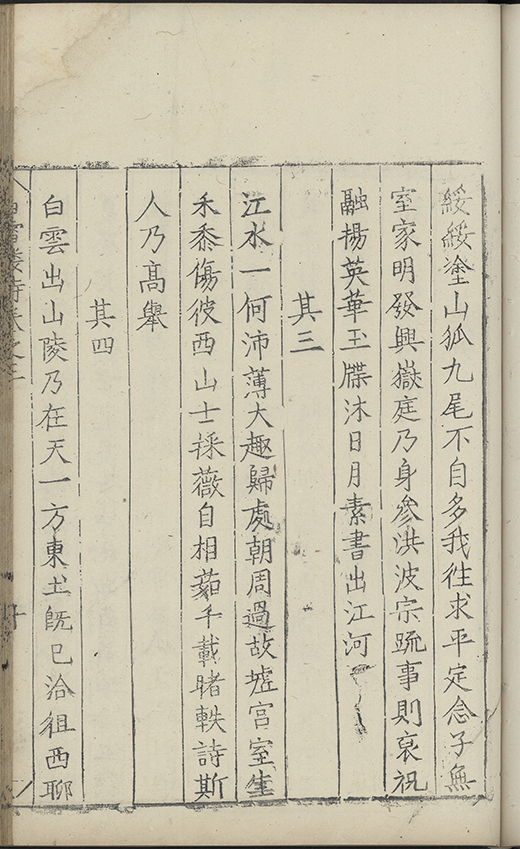 綏綏塗山狐九尾不自多我徃求平定念子無
室家明發興嶽庭乃身參洪波宗䟽事則裒祝
融揚英華玉牒沐日月素書出江河
其三
江水一何沛薄大趣歸處朝周過故墟宮室生
禾黍傷彼西山士採薇自相茹千載睹軼詩斯
人乃高舉
其四
白雲出山陵乃在天一方東土旣已洽徂西聊
白雪樓詩卷之二